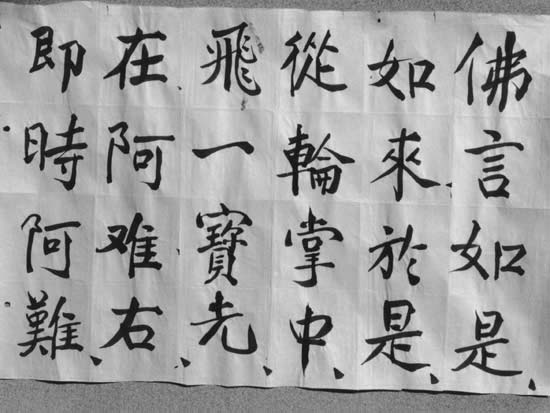 佛言如是
如來於是
從輪掌中
飛一寶光
在阿难右
即時阿難